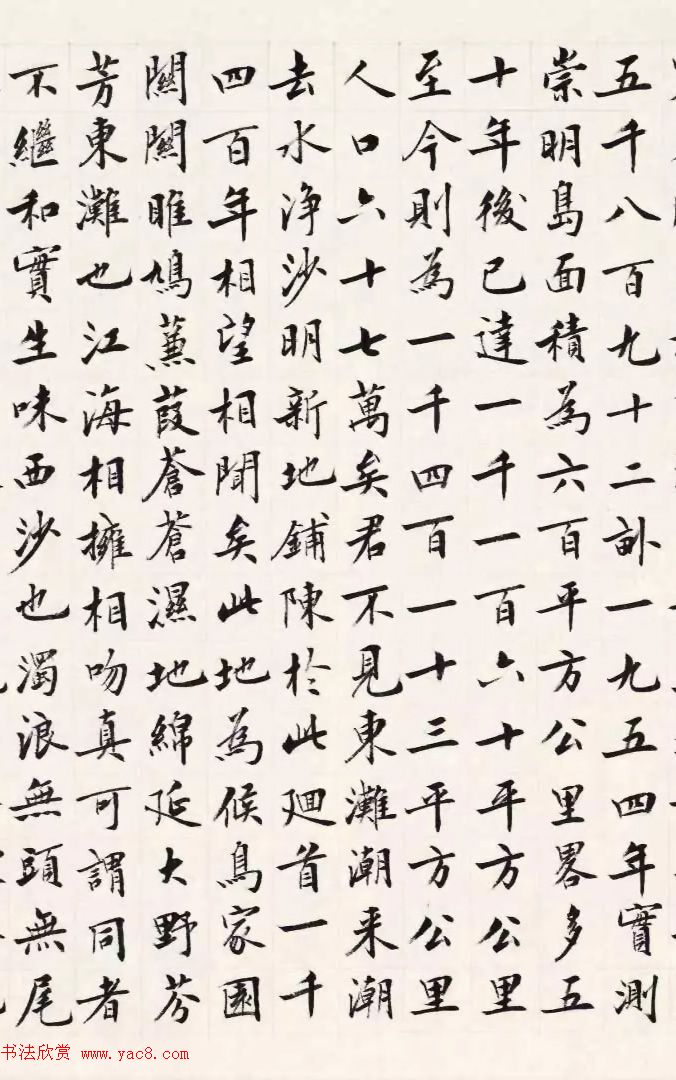 五千八百九十二畝一九五四年實測
崇明島面積為六百平方公里畧多五
十年後已達一千一百六十平方公里
至今則為一千四百一十三平方公里
人口六十七萬矣君不見東灘潮来潮
去水淨沙明新地鋪陳於此廻首一千
四百年相望相聞矣此地為候鳥家園
關關睢鳩蒹葭蒼蒼濕地綿延大野芬
芳東灘也江海相擁相吻真可謂同者
不繼和實生味西沙也濁浪無頭無尾
书法欣赏 www.yac8.com